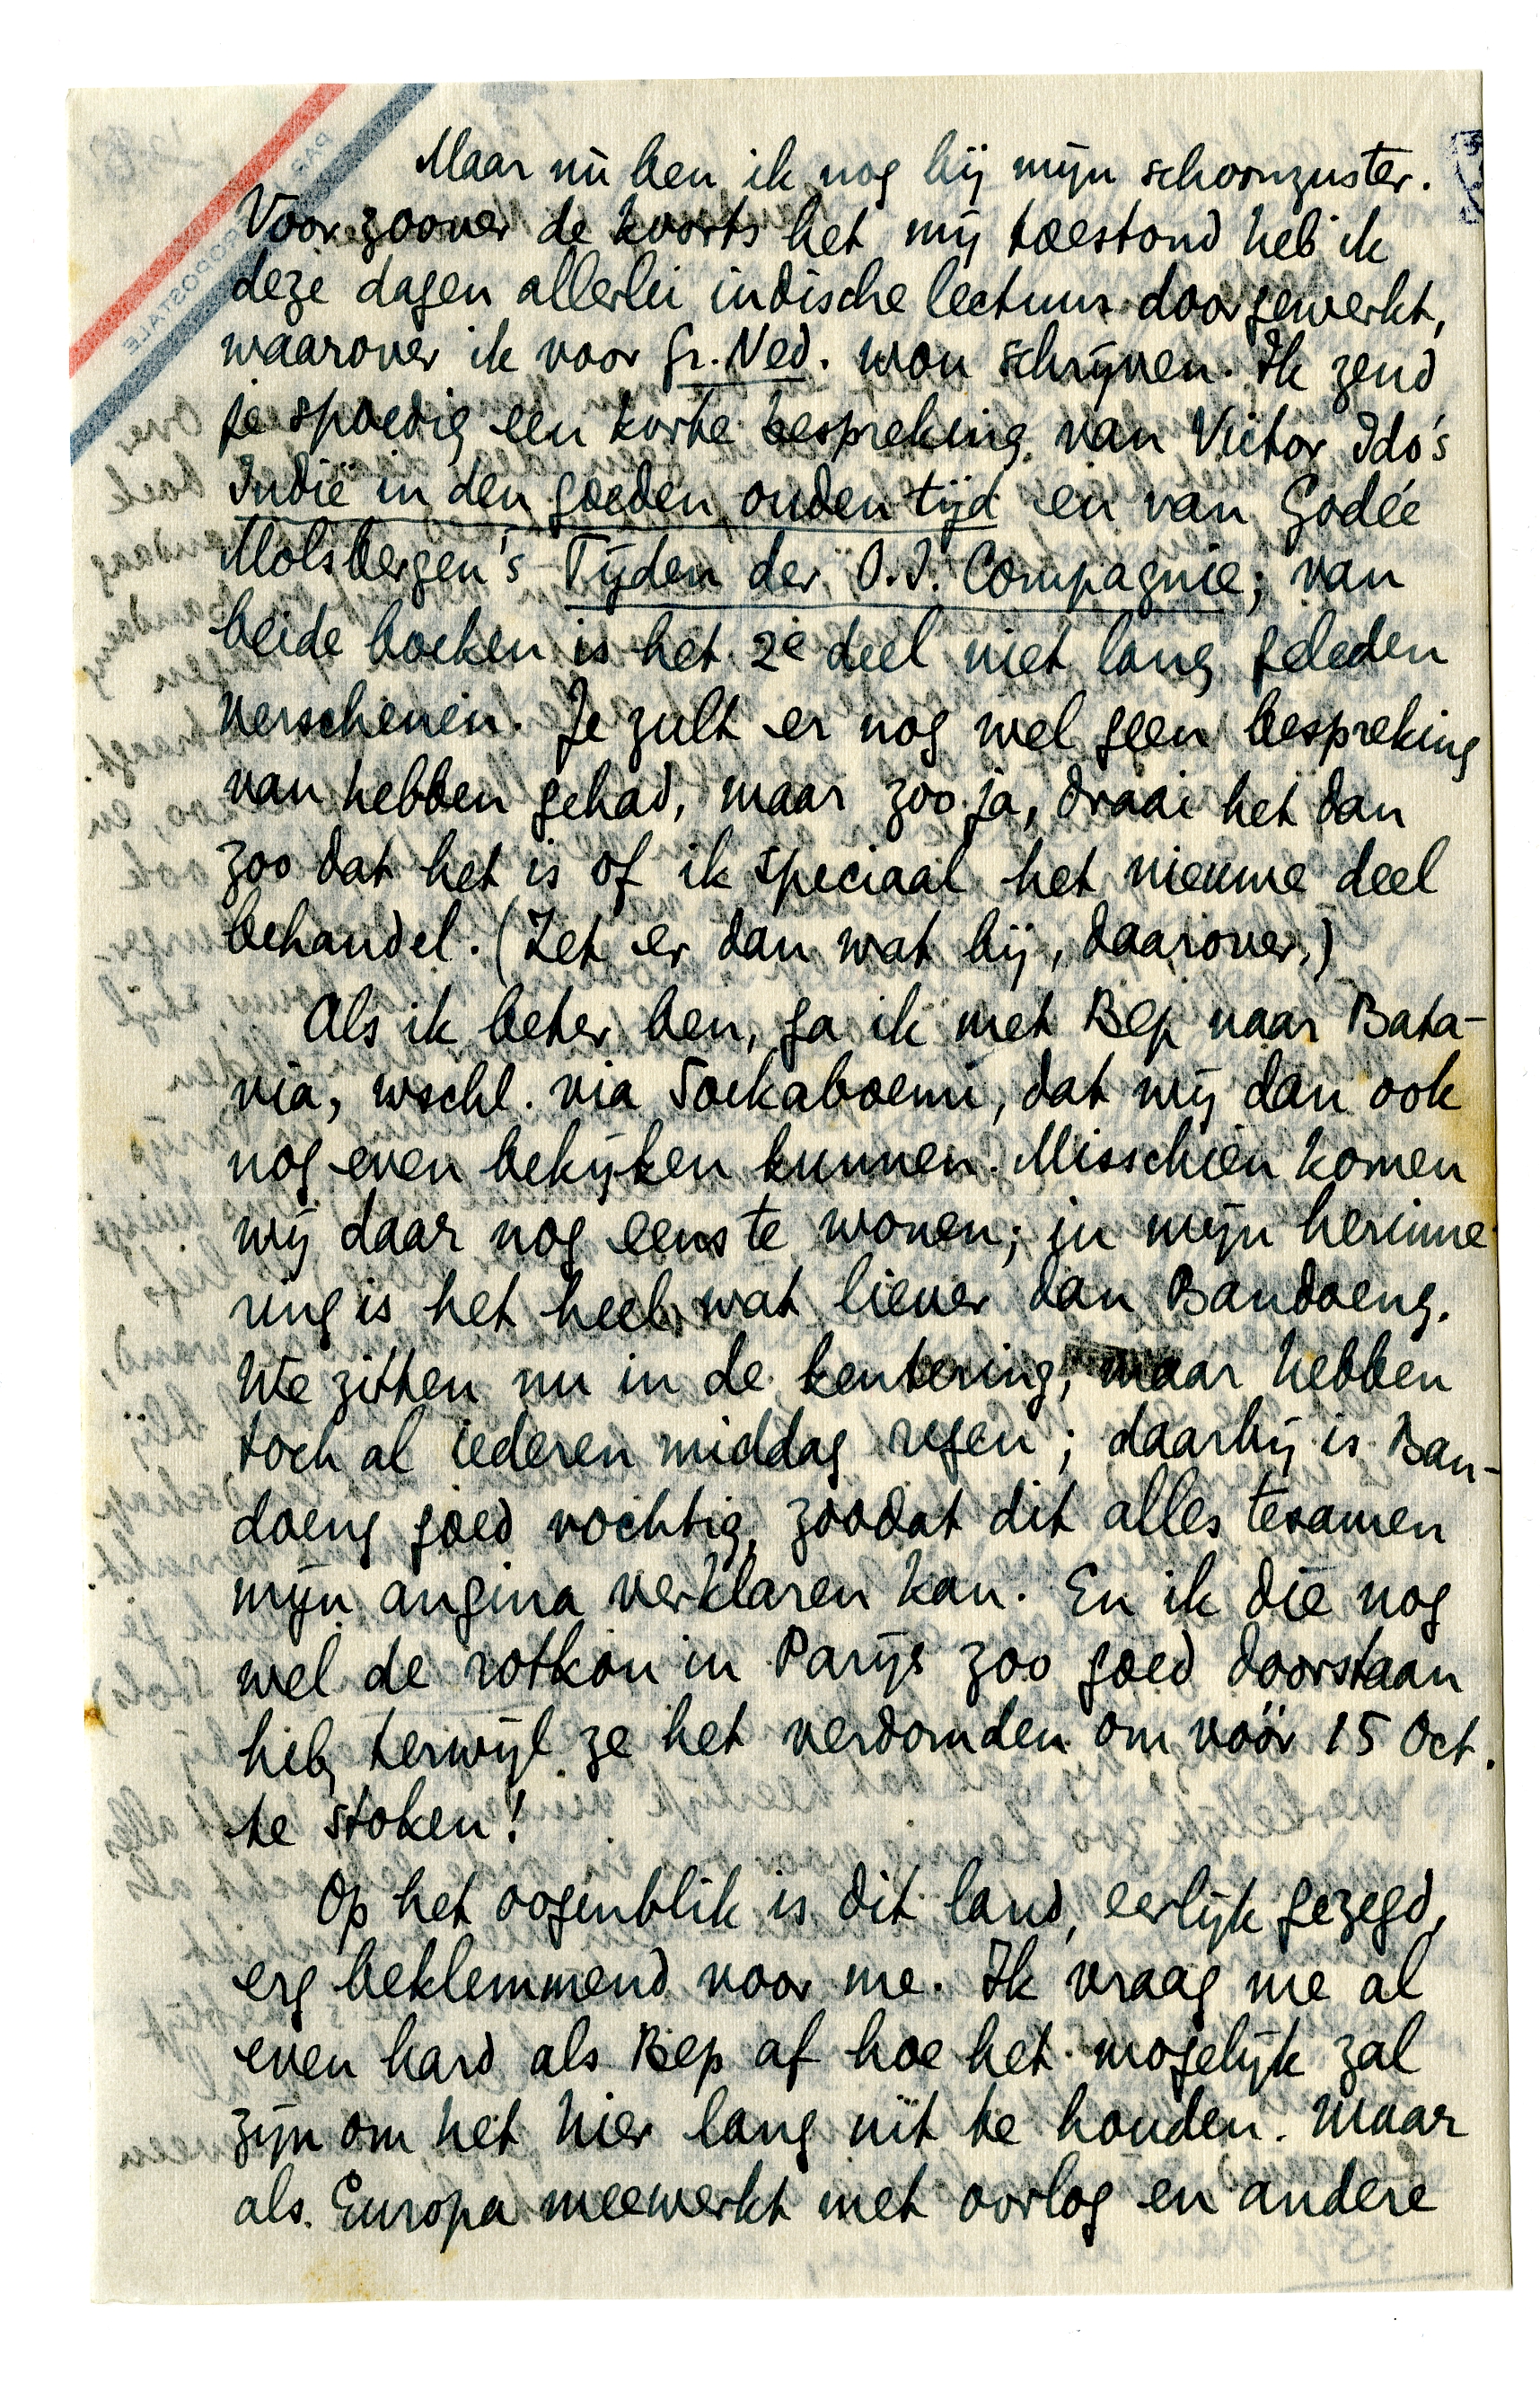 Maar nù ben ik nog bij mijn schoonzuster.
Voor zoover de koorts het mij toestond heb ik
deze dagen allerlei indische lectuur doorgewerkt,
waarover ik voor Gr. Ned. wou schrijven. Ik zend
je spoedig een korte bespreking van Victor Ido's
Indië in den goeden ouden tijd en van Godée
Molsbergen's Tijden der O.I. Compagnie; van
beide boeken is het 2e deel niet lang geleden
verschenen. Je zult er nog wel geen bespreking
van hebben gehad, maar zoo ja, draai het dan
zoo dat het is of ik speciaal het nieuwe deel
behandel. (Zet er dan wat bij, daarover.)
Als ik beter ben, ga ik met Bep naar Bata-
via, wschl. via Soekaboemi, dat wij dan ook
nog even bekijken kunnen. Misschien komen
wij daar nog eens te wonen; in mijn herinne-
ring is het heel wat liever dan Bandoeng.
We zitten nu in de kentering, maar hebben
toch al iederen middag regen; daarbij is Ban-
doeng goed vochtig, zoodat dit alles tesamen
mijn angina verklaren kan. En ik die nog
wel de rotkou in Parijs zoo goed doorstaan
heb, terwijl ze het verdomden om vóór 15 Oct.
te stoken!
Op het oogenblik is dit land, eerlijk gezegd,
erg beklemmend voor me. Ik vraag me al
even hard als Bep af hoe het mogelijk zal
zijn om het hier lang uit te houden. Maar
als Europa meewerkt met oorlog en andere
PAR
AÉROPOSTALE